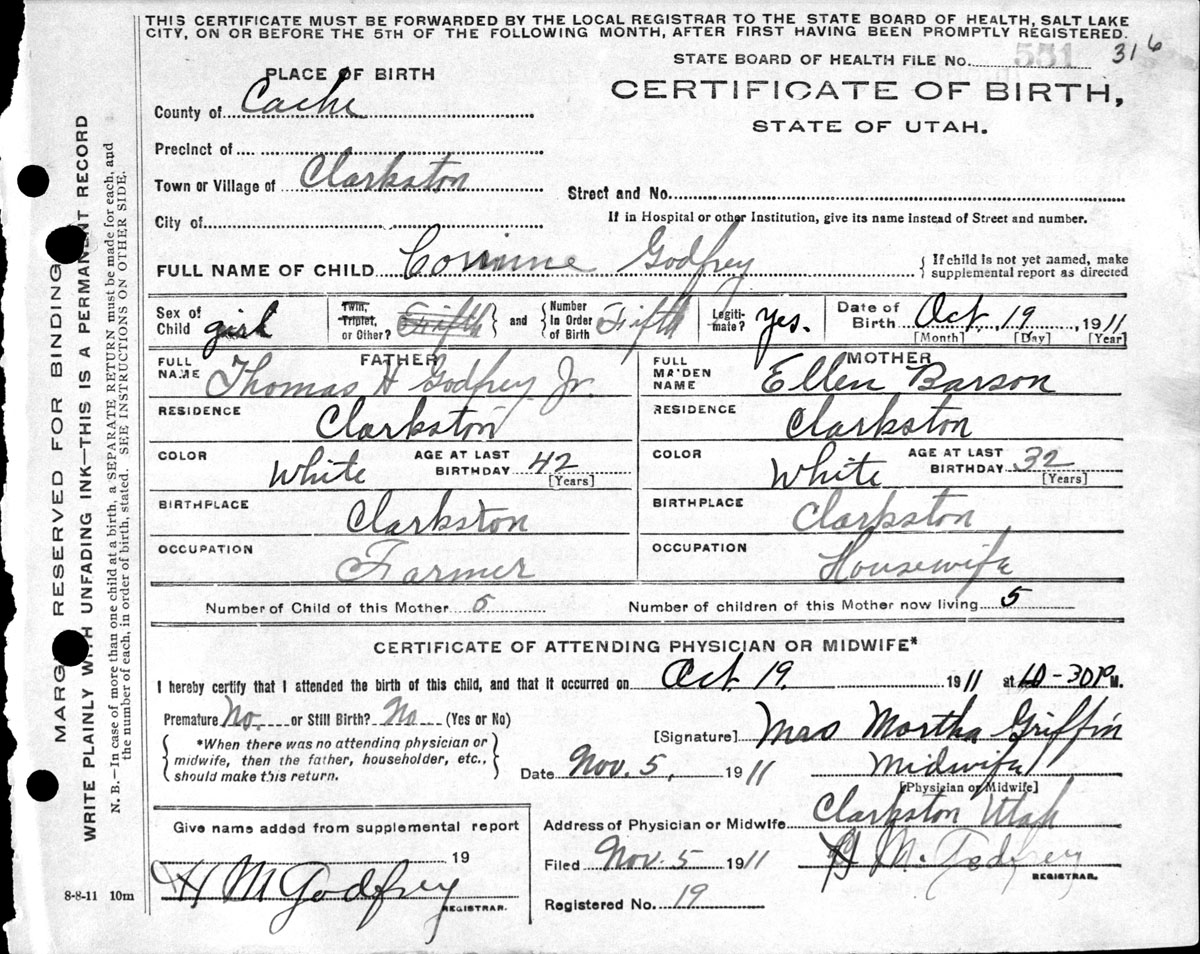 THIS CERTIFICATE MUST BE FORWARDED BY THE LOCAL REGISTRAR TO THE STATE BOARD OF HEALTH, SALT LAKE
CITY, ON OR BEFORE THE 5TH OF THE FOLLOWING MONTH, AFTER FIRST HAVING BEEN PROMPTLY REGISTERED.
STATE BOARD OF HEALTH FILE No. 551 316
PLACE OF BIRTH
CERTIFICATE OF BIRTH,
STATE OF UTAH.
County of Cache
Precinct of
Town or Village of Clarkston
Street and No.
City of
If in Hospital or other Institution, give its name instead of Street and number.
FULL NAME OF CHILD Corinne Godfrey { If child is not yet named, make
supplemental report as directed
Sex of Child girl
Twin, Triplet, or Other? Fifth and { Number In Order of Birth Fifth
Legiti-mate? Yes.
Date of Birth Oct. 19, 1911
[Month] [Day] [Year]
FATHER
FULL NAME Thomas H Godfrey Jr.
RESIDENCE Clarkston
COLOR White AGE AT LAST BIRTHDAY 42
[Years]
BIRTHPLACE Clarkston
OCCUPATION Farmer
MOTHER
FULL MAIDEN NAME Ellen Barson
RESIDENCE Clarkston
COLOR White AGE AT LAST BIRTHDAY 32
[Years]
BIRTHPLACE Clarkston
OCCUPATION Housewife
Number of Child of this Mother 5 Number of children of this Mother now living 5
CERTIFICATE OF ATTENDING PHYSICIAN OR MIDWIFE*
I hereby certify that I attended the birth of this child, and that it occurred on Oct. 19. 1911 at 10-30 P M.
Premature No. or Still Birth? No (Yes or No)
{ *When there was no attending physician or
midwife, then the father, householder, etc.,
should make this return. }
[Signature] Mrs Martha Griffin
Date Nov. 5, 1911 Midwife
[Physician or Midwife]
Give name added from supplemental report
19
H M Godfrey
REGISTRAR.
Address of Physician or Midwife Clarkston Utah
Filed Nov. 5 1911 H M. Godfrey
REGISTRAR.
Registered No. 19
8-8-11 10m
MARGIN RESERVED FOR BINDING
WRITE PLAINLY WITH UNFADING INK—THIS IS A PERMANENT RECORD
N. B.—In case of more than one child at a birth, a SEPARATE RETURN must be made for each, and
the number of each, in order of birth, stated. SEE INSTRUCTIONS ON OTHER SIDE.